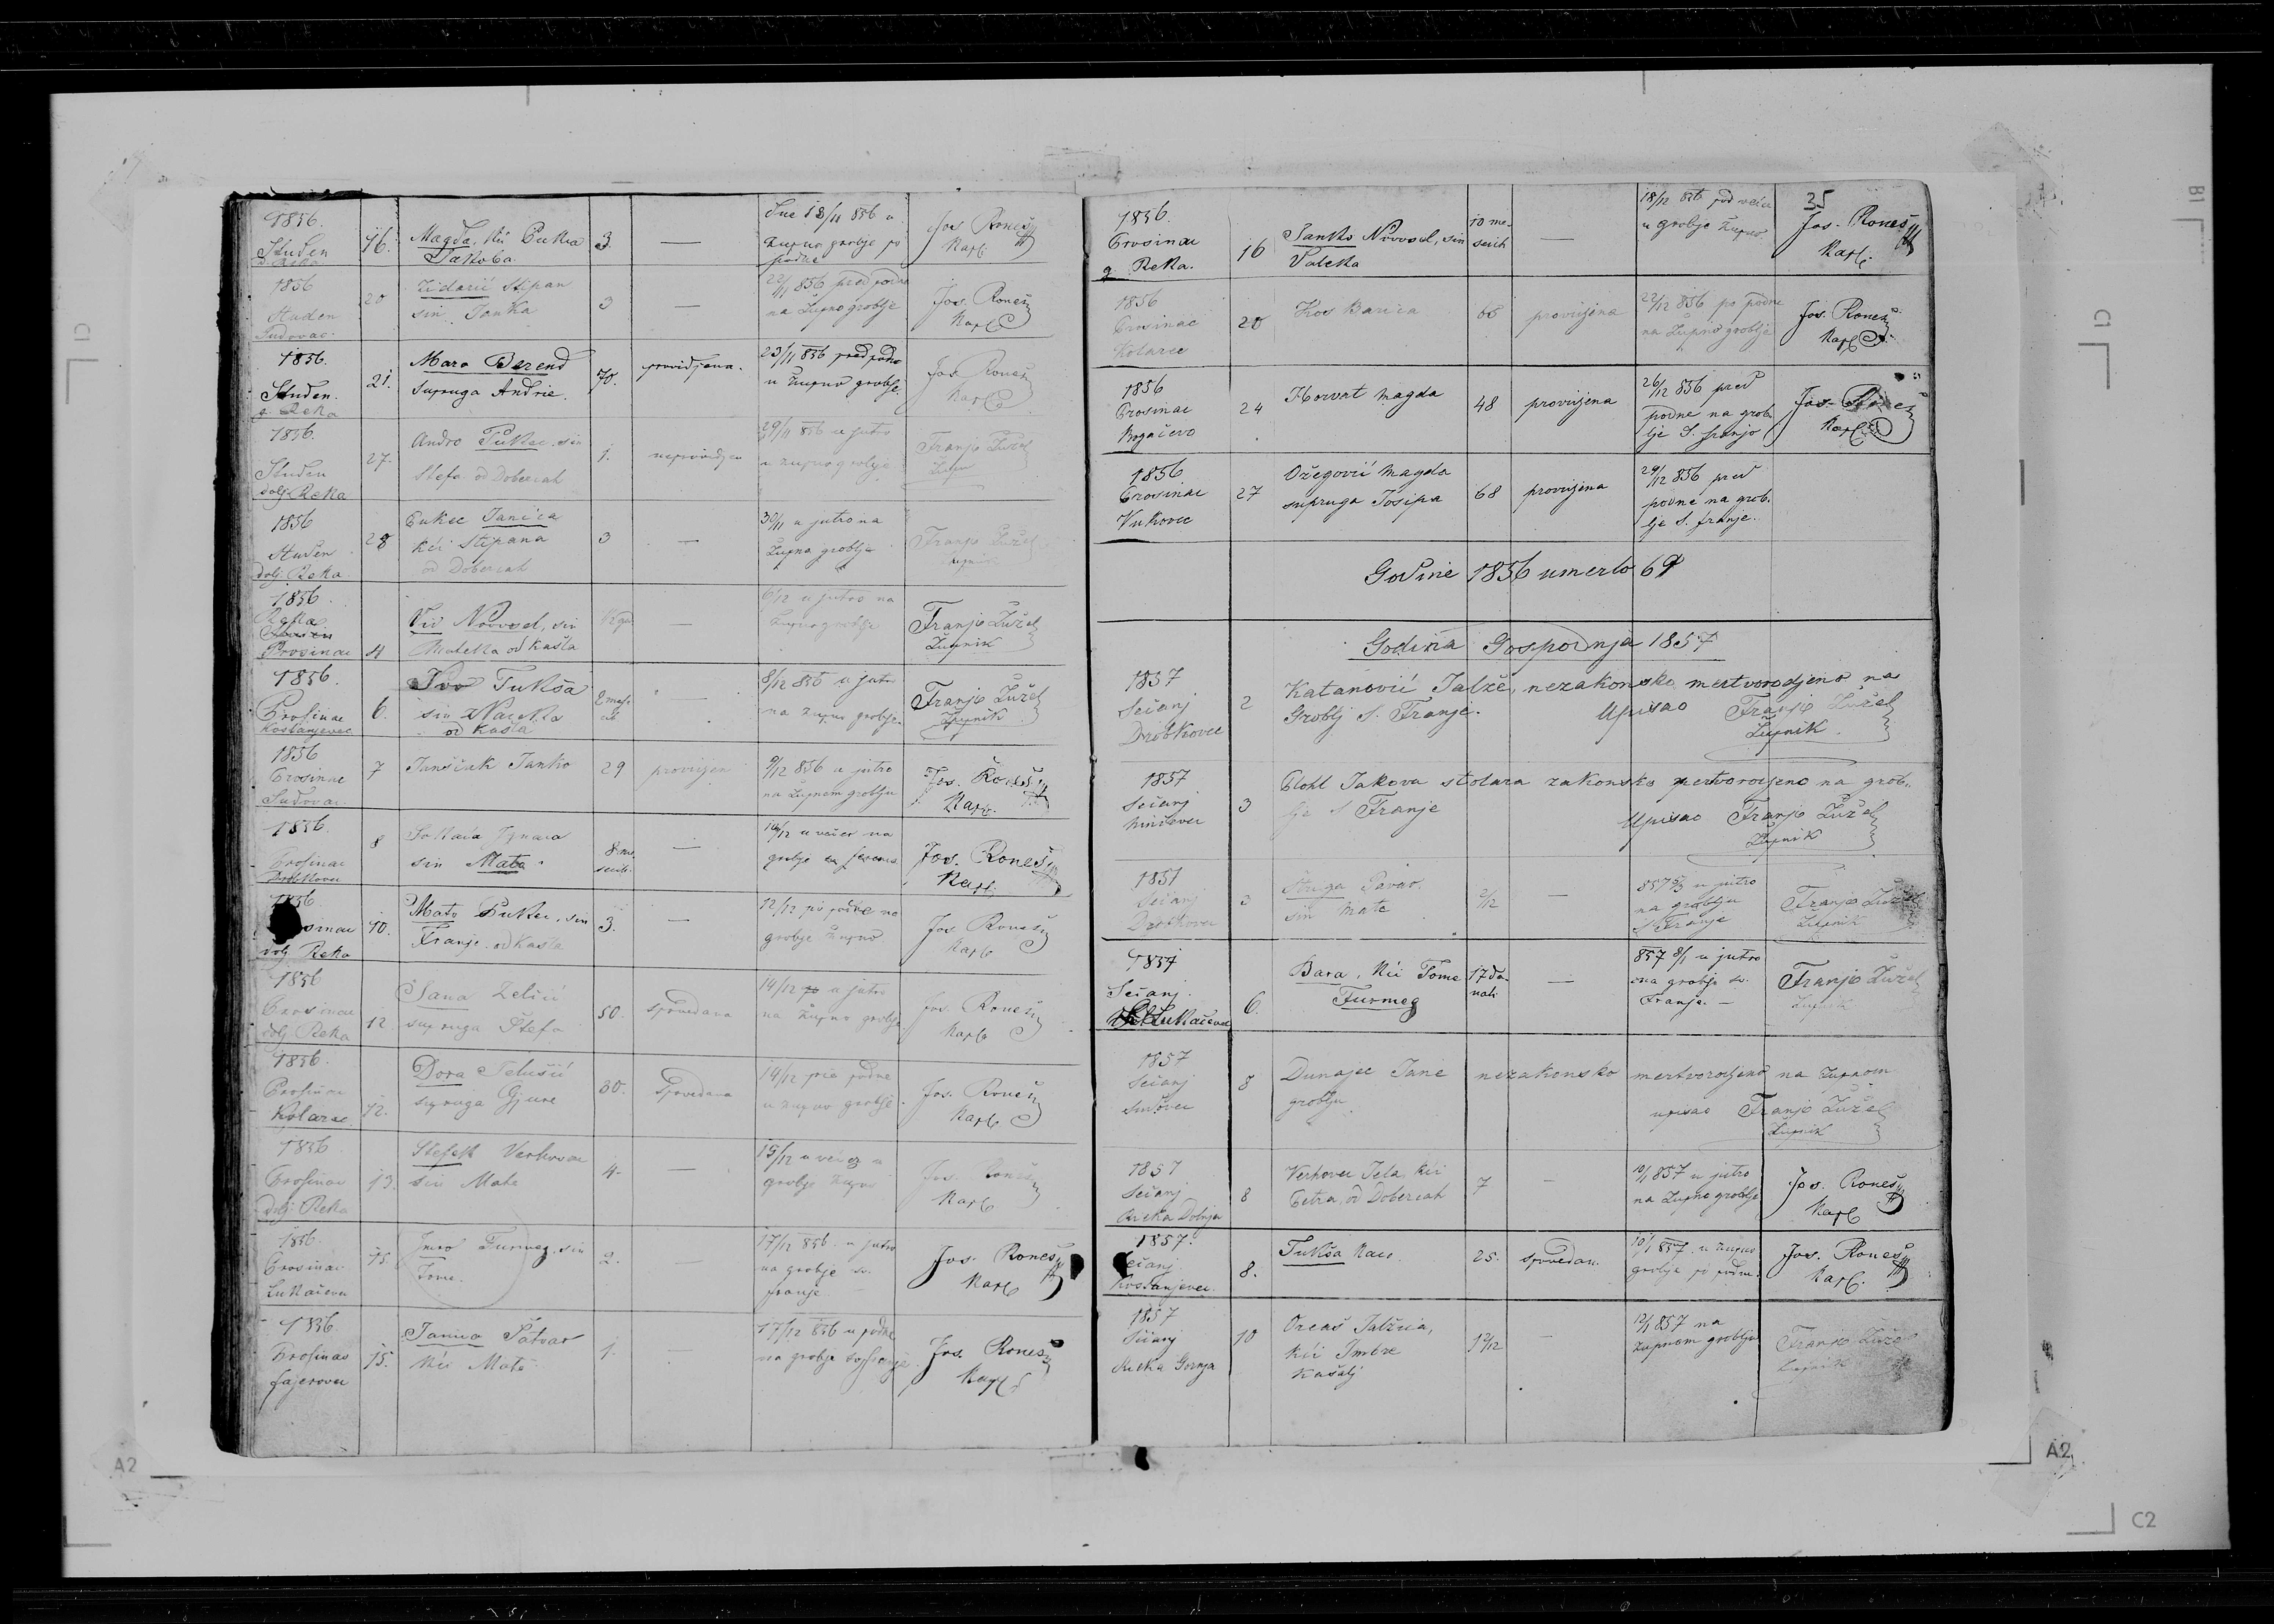 1856.
Studen
d. Reka
16.
Magda, kći Pukca
Jakoba.
3.
—
Dne 18/11 856 u
župno groblje po
podne
Jos. Roneš
Kapl.
1856
Studen
Sudovac.
20
Zidarić Stipan
sin Janka
3
—
22/11 856 pred podne
na Župno groblje
Jos. Roneš
Kapl.
1856.
Studen.
g. Reka
21.
Mara Berend
supruga Andrie.
70.
providjena.
23/11 856 pred podne
u župno groblje.
Jos. Roneš
Kapl.
1856.
Studen
dolj. Reka
27.
Andro Pukec, sin
Stefa od Doberiah
1.
neprovidjen
29/11 856 u jutro
u župno groblje
Franjo Žužel
Župnik
1856
Studen
dolj. Reka
28
Pukec Janica
kći Stipana
od Doberiah
3
—
30/11 u jutro na
Župno groblje
Franjo Žužel
župnik
1856.
Reka
Prosinac
4
Vid Novosel, sin
Mateka od Kašla
—
6/12 u jutro na
župno groblje
Franjo Žužel
Župnik
1856.
Prosinac
Kostanjevec
6.
Ivo Tukša
sin
od Kašla
—
8/12 856 u jutro
na župno groblje.
Franjo Žužel
Župnik
1856
Prosinac
Sudovac.
7
Jansiak Janko
29
providjen
9/12 856 u jutro
na Župnom groblju
Jos. Roneš
Kapl.
1856.
Prosinac
Drobkovec
8
Ignaca
sin Mata.
8 me-
secih.
—
10/12 u večer na
groblje sv. franca
Jos. Roneš
Kapl.
1856
sinac
dolj Reka
10.
Mato Pukec, sin
Franje od Kašla
3.
—
12/12 po podne na
groblje župno
Jos. Roneš
Kapl.
1856
Prosinac
dolj Reka
12.
Jana Zelčić
supruga Štefa
50.
spovedana
14/12 u jutro
na župno groblje
Jos. Roneš
Kapl.
1856.
Prosinac
Kolarec
12.
Dora Telušić
supruga Gjure
30.
Spovedana
14/12 pre podne
u župno groblje.
Jos. Roneš
Kapl.
1856
Prosinac
dolj. Reka
13.
Stefek Verhovac
sin Mate
4.
—
15/12 u večer u
groblje župno
Jos. Roneš
Kapl.
1856.
Prosinac
Lukačevec
15.
Imro Furmeg, sin
Tome.
2.
—
17/12 856. u jutro
na groblje sv.
franje
Jos. Roneš
Kapl.
1856.
Prosinac
fajerovec
15.
Janica Patvar
kći Mate
1.
—
17/12 856 u podne
na groblje sv. franje
Jos. Roneš
Kapl.
35
1856.
Prosinac
g. Reka.
16
Janko Novosel, sin
Valeka
10 me-
secih
—
18/12 856 pod večer
u groblje župno
Jos. Roneš
Kapl.
1856
Prosinac
Kolarec
20
Kos Barica
66
providjena
22/12 856 po podne
na Župno groblje
Jos. Roneš
Kapl.
1856
Prosinac
Bogačevo
24
Horvat Magda
48
providjena
26/12 856 pred
podne na grob-
lje S. franjo
Jos. Roneš
Kapl.
1856
Prosinac
Vukovec
27
Ožegović Magda
supruga Josipa
68
providjena
29/12 856 pred
podne na grob-
lje S. franje.
Godine 1856 umerlo 69
Godina Gospodnja 1857
1857
Sečanj
Drobkovec
2
Katanović Jalže, nezakonsko mertvorodjeno na
Groblj S. Franje. Upisao Franjo Žužel
Župnik.
1857
Sečanj
Ninčevec
3
Plohl Jakova stolara zakonsko mertvorodjeno na grob-
lje S Franje Upisao Franjo Žužel
Župnik
1857
Sečanj
Drobkovec
3
Struga Pavao.
sin Mate
2/12
—
857 5/1 u jutro
na groblju
S. Franje
Franjo Žužel
Župnik
1857
Sečanj.
Lukačevec
6.
Bara, kći Tome
Furmeg
17 da-
nah
—
857 8/1 u jutro
na groblje sv.
Franje.—
Franjo Žužel
Župnik
1857
Sečanj
Sudovec
8
Dunajec Jane nezakonsko mertvorodjeno na Župnom
groblju
upisao Franjo Žužel
Župnik
1857
Sečanj
Rieka Dolnja
8
Verhovec Jela kći
Petra, od Doberiah
7
—
10/1 857 u jutro
na Župno groblje
Jos. Roneš
Kapl.
1857.
Sečanj
Kostanjevec.
8.
Tukša Kaco
25.
spovedan.
10/1 857. u župno
groblje po podne.
Jos. Roneš
Kapl.
1857
Sečanj
Rieka Gornja
10
Oreač Jalžica,
kći Imbre
Kašalj
1 2/12
—
12/1 857 na
Župnom groblju
Franjo Žužel
Župnik
C1
A2
C1
B1
A2
C2